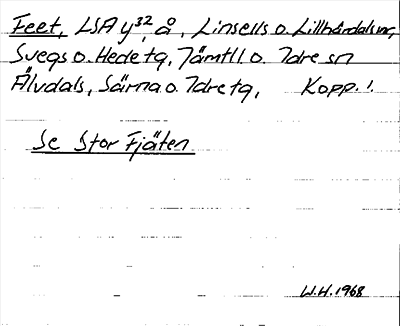 Feet, LSA y³², å, Linsells o. Lillhärdalsnr,
Svegs o. Hede tg, Jämtl l o. Idre sn
Älvdals, Särna o. Idre tg, Kopp. l.
Se Stor Fjäten
W.H. 1968